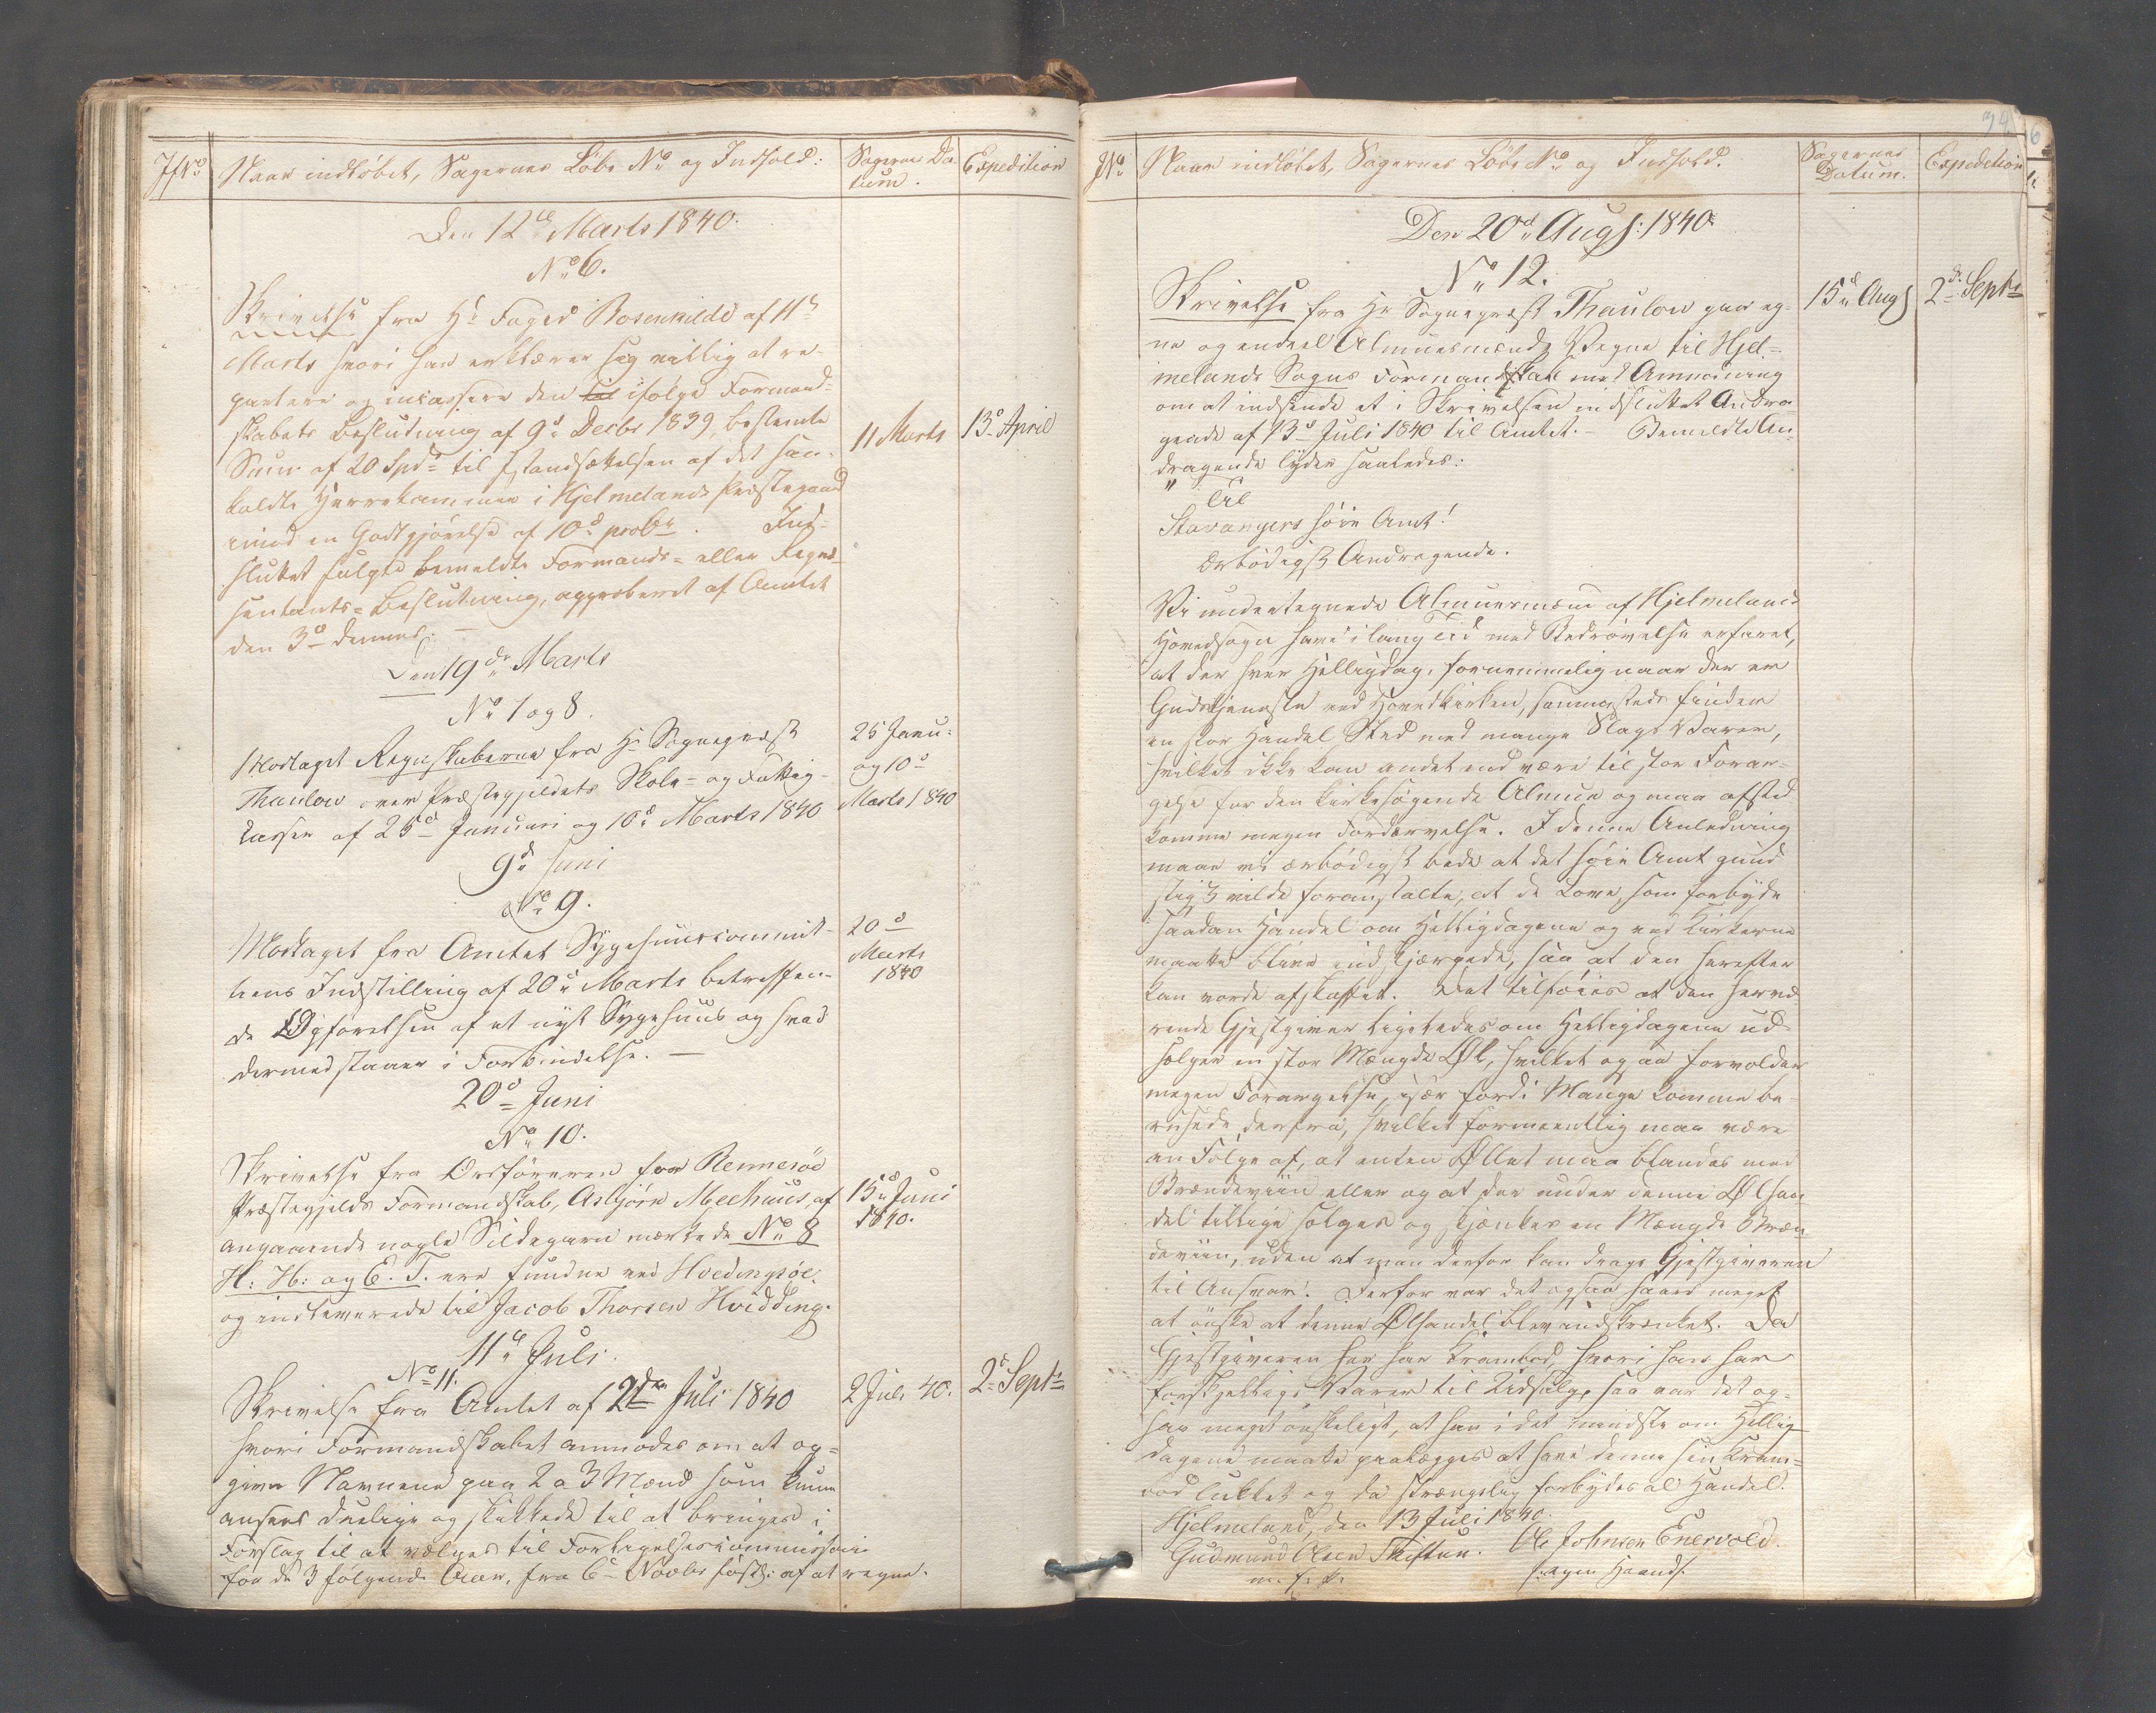 J/No Naar indløbet, Sagernes Løbe No og Indhold: Sagernes Da-
tum. Expedition
Den 12d Marts 1840.
No 6.
Skrivelse fra Hr Foged Rosenkilde af 11d
Marts hvori han erklærer sig villig at re-
partere og incassere den til ifølge Formand-
skabets Beslutning af 9d Decbr 1839, bestemte
Sum af 20 Spd til Istandsættelsen af det saa-
kaldte Herrekammer i Hjelmelands Præstegaard
imod en Godtgjørelse af 10d proCt. Ind-
sluttet fulgte bemeldte Formands- eller Repræ-
sentants-Beslutning, approberet af Amtet
den 3d dennes. —
11 Marts 13d April
Den 19de Marts
No 7 og 8.
Modtaget Regnskaberne fra Hr Sognepræst
Thaulow over Præstegjeldets Skole- og Fattig-
kasser af 25d Januari og 10d Marts 1840
25 Janu:
og 10d
Marts 1840
9d Juni
No 9.
Modtaget fra Amtet Sygehuuscommit-
teens Indstilling af 20d Marts betreffen-
de Opførelsen af et nyt Sygehuus og hvad
dermed staaer i Forbindelse. —
20d
Marts
1840
20d Juni
No 10.
Skrivelse fra Ordføreren for Rennesøe
Præstegjelds Formandskab, Asbjørn Meelhuus, af
angaaende nogle Sildegarn mærkede No 8
H: H: og E. T. ere fundne ved Hvedingsøe.
og indleverede til Jacob Thorsen Hvidding.
15d Juni
1840.
11d Juli.
No 11.
Skrivelse fra Amtet af 2den Juli 1840
hvori Formandskabet anmodes om at op-
give Navnene paa 2 a 3 Mænd som kunne
ansees duelige og skikkede til at bringes i
Forslag til at vælges til Forligelsescommissair
for de 3 følgende Aar, fra 6d Novbr førstk: af at regne.
2 Juli 40. 2d Septr
J/No Naar indløbet, Sagernes Løbe No og Indhold. Sagernes
Datum. Expedition
Den 20d Augs: 1840.
No 12.
Skrivelse fra Hr Sognepræst Thaulow paa eg-
ne og endeel Almuesmænds Vegne til Hjel-
melands Sogns Formandskab med Anmodning
om at indsende et i Skrivelsen indsluttet Andra-
gende af 13d Juli 1840 til Amtet. — Bemeldte An-
dragende lyder saaledes:
15d Augs 2de Septr
" Til
Stavangers høie Amt!
Ærbødigst Andragende.
Vi undertegnede Almuesmænd af Hjelmelands
Hovedsogn have i lang Tid med Bedrøvelse erfaret,
at der hver Helligdag, fornemmelig naar der er
Gudstjeneste ved Hovedkirken, sammesteds finder
en stor Handel Sted med mange Slags Varer,
hvilket ikke kan andet end være til stor Forar-
gelse for den kirkesøgende Almue og maa afsted
komme megen Fordærvelse. I denne Anledning
maae vi ærbødigst bede at det høie Amt gund
stigst vilde foranstalte, at de Love, som forbyde
saadan Handel om Helligdagene og ved Kirkerne
maatte blive indskjærpede, saa at den herefter
kan vorde afskaffet. Det tilføies at den hervæ
rende Gjestgiver ligeledes om Helligdagene ud-
sælger en stor Mængde Øl, hvilket ogsaa forvolder
megen Forargelse, især fordi Mange komme be-
rusede derfra, hvilket formeentlig maa være
en Følge af, at enten Øllet maa blandes med
Brændeviin eller og at der under denne Ølhan
del tillige sælges og skjænkes en Mængde Bræn
deviin, uden at man derfor kan drage Gjestgiveren
til Ansvar. Derfor var det ogsaa saare meget
at ønske at denne Ølhandel blev indskrænket. Da
Gjestgiveren her har Krambod, hvori han har
forskjellige Varer til Udsalg, saa var det og-
saa meget ønskeligt, at han i det mindste om Hellig
dagene maatte paalægges at have denne sin Kram-
bod lukket og da strængelig forbydes al Handel.
Hjelmeland, den 13 Juli 1840.
Gudmund Olsen Skiftun. Ole Johnsen Enervold.
m. f. P. egen Haand.